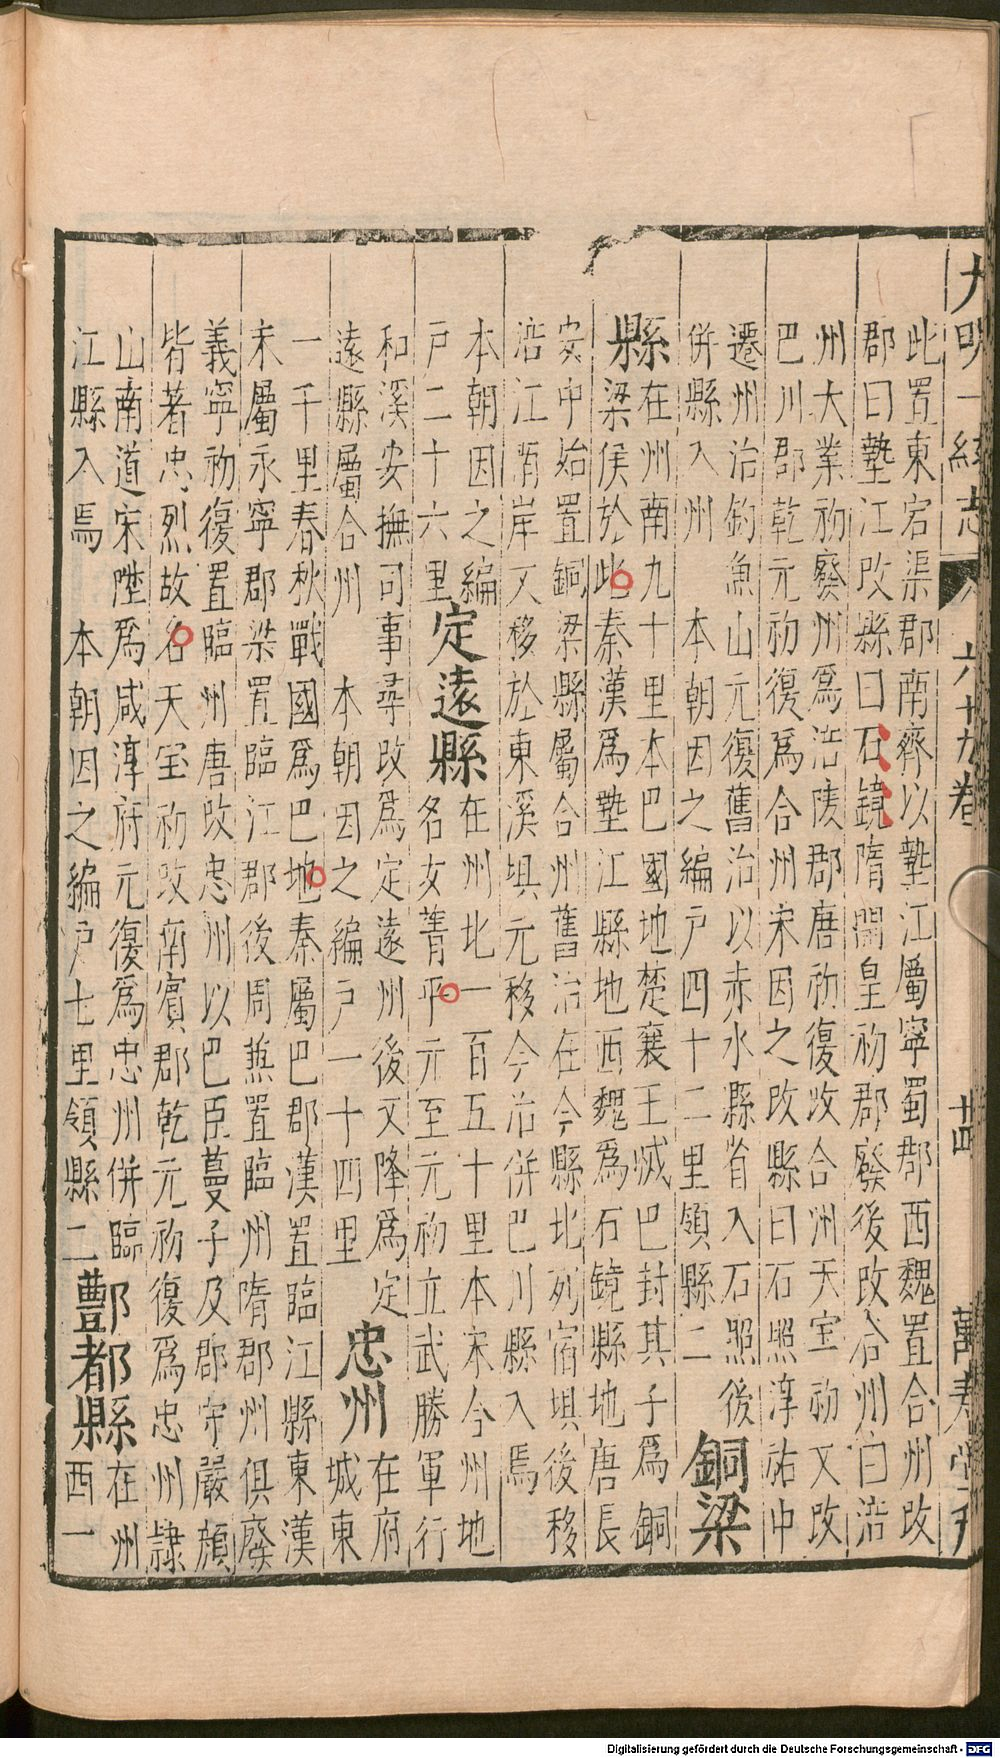 大明一統志 六十九卷 廿四 萬壽堂刊
此置東宕渠郡南齊以墊江屬寧蜀郡西魏置合州改
郡曰墊江改縣曰石鏡隋開皇初郡廢後改合州曰涪
州大業初廢州爲涪陵郡唐初復改合州天宝初又改
巴川郡乾元初復爲合州宋因之改縣曰石照淳祐中
遷州治釣魚山元復舊治以赤水縣省入石照後
併縣入州 本朝因之編户四十二里領縣二
銅梁
縣
在州南九十里本巴國地楚襄王滅巴封其子爲銅
梁侯於此秦漢爲墊江縣地西魏爲石鏡縣地唐長
安中始置銅梁縣屬合州舊治在今縣北列宿埧後移
涪江南岸又移於東溪埧元移今治併巴川縣入焉
本朝因之編
户二十六里
定遠縣
在州北一百五十里本宋合州地
名女菁平元至元初立武勝軍行
和溪安撫司事尋改爲定遠州後又降爲定
遠縣屬合州 本朝因之編户一十四里
忠州
在府
城東
一千里春秋戰國爲巴地秦屬巴郡漢置臨江縣東漢
末屬永寧郡梁置臨江郡後周兼置臨州隋郡州俱廢
義寧初復置臨州唐改忠州以巴臣蔓子及郡守嚴顔
皆著忠烈故名天宝初改南賓郡乾元初復爲忠州隷
山南道宋陞爲咸淳府元復爲忠州併臨
江縣入焉 本朝因之編户七里領縣二
酆都縣
在州
西一
Digitalisierung gefördert durch die Deutsche Forschungsgemeinschaft - DFG